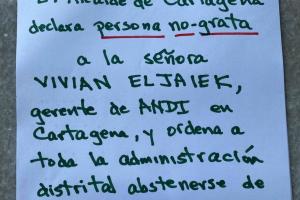 El Alcalde de Cartagena
declara persona no-grata
a la señora
VIVIAN ELJAIEK,
gerente de ANDI en
Cartagena, y ordena a
toda la administración
distrital abstenerse de